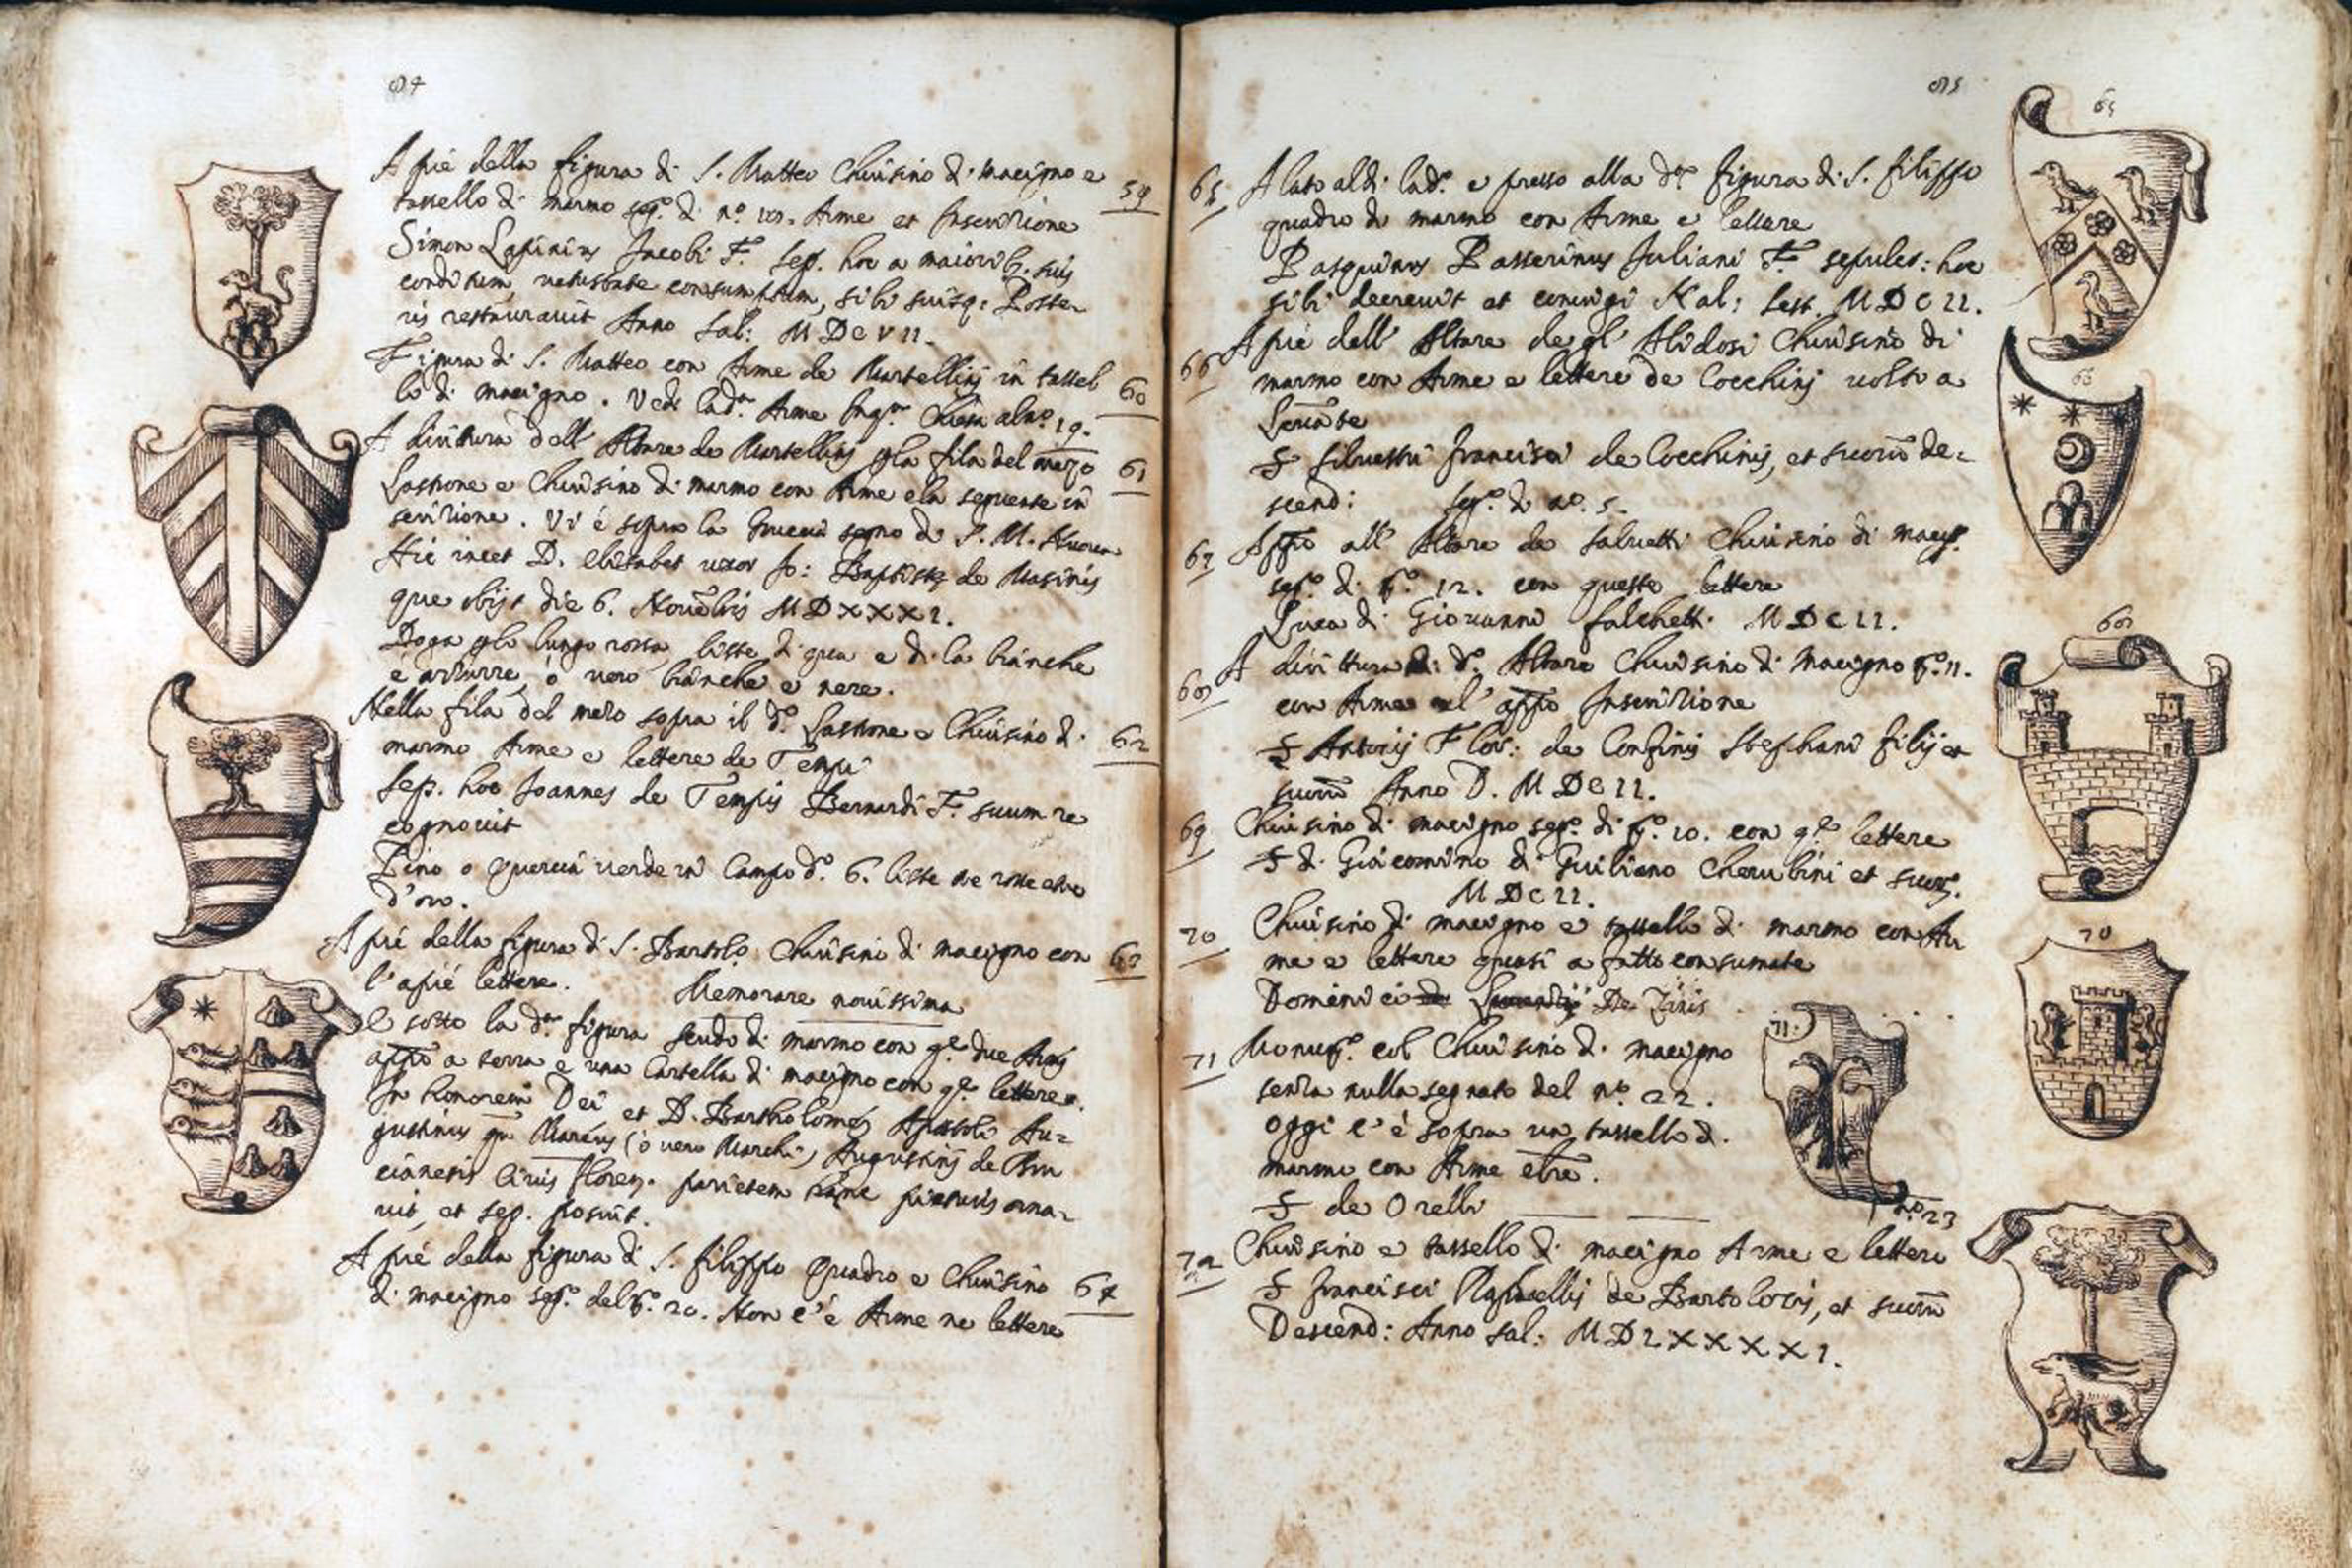 84
A pié della figura di S. Matteo Chiusino di macigno e
tassello di marmo seg.º di nº Arme et Inscrizione
59
Simon Lapinius Jacobi F. sep. hoc a maiorib. suis
conditum, vetustate consumptum, sibi suisq: Poste-
ris restauravit Anno Sal: MDCVII.
Figura di S. Matteo con Arme de Martellinj in tassel
lo di macigno. Vedi lad.ª Arme Chiesa alnº 19.
60
A dirittura dell' Altare de Martellinj p la fila del mezo
Lastrone e Chiusino di marmo con Arme e la seguente in
61
scrizione. Vi é sopra la Gruccia segno di S. M. Nuova
Hic iacet D. Elisabet uxor Jo: Baptistę de Masinis
que obijt die 6. Novẽbris MDXXXI.
Doga p lo lungo rossa, liste di qua e di la bianche
e azzurre, ó vero bianche e nere.
Nella fila del mezo sopra il dº Lastrone e Chiusino di
marmo Arme e lettere de Tempi
62
Sep. hoc Joannes de Tempis Bernardi F. suum re
cognovit
Pino o quercia verde in Campo dº. 6. liste tre rosse e tre
d'oro.
A pié della figura di S. Bartolo Chiusino di macigno con
l'apié lettere. Memorare novissima
63
E sotto la dª figura scudo di marmo con qº due Armj
appo a terra e una Cartella di macigno con qº lettere.
In honorem Dei et D. Bartholomęj Apostoli Au-
gustinus qm Marcus (ó vero Marchi) Augustinj de
cianesis Civis Floren. parietem hanc picturis orna-
vit, et sep. posuit.
A pié della figura di S. Filippo Quadro e Chiusino
di macigno seg.º del nº. 20. Non c'é Arme ne lettere
64
85
65
65
A lato al di lad.º e presso alla dª figura di S. Filippo
quadro di marmo con Arme e lettere
Pasquinus Passerinus Juliani F. sepulcr: hoc
sibi decrevit et coniugi Kal: Sett. MDCII.
66
66
A pié dell' Altare degl' Alidosi Chiusino di
marmo con Arme e lettere de Cocchinj volto a
Levãte
S Silvestri Francisci de Cocchinis, et suorũ de-
scend: segº di nº. 5.
67
Appo all' Altare de Salvetti Chiusino di macigº.
segº. di nº. 12. con queste lettere
Luca di Giovanni Falchetti MDCII.
68
68
A dirittura di dº Altare Chiusino di macigno nº. 11.
con Arme e l' appo Inscrizione
S Antonij Flor: de Confinis Stephani filij et
suorũ Anno D. MDCII.
69
Chiusino di macigno segº. di nº. 10. con qº lettere
S di Giacomino di Giuliano Cherubini et suorũ.
MDCII.
70
70
Chiusino di macigno e tassello di marmo con Ar
me e lettere quasi a fatto consumate
Dominici De Zinis
71
71.
Monumº. col Chiusino di macigno
senza nulla segnato del nº. 22.
oggi c'é sopra un tassello di
marmo con Arme e lre.
S de Orelli
nº 23
72
Chiusino e tassello di macigno Arme e lettere
S Francisci Raphaellis de Bartolocis, et suorũ
Descend: Anno Sal: MDLXXXXI.